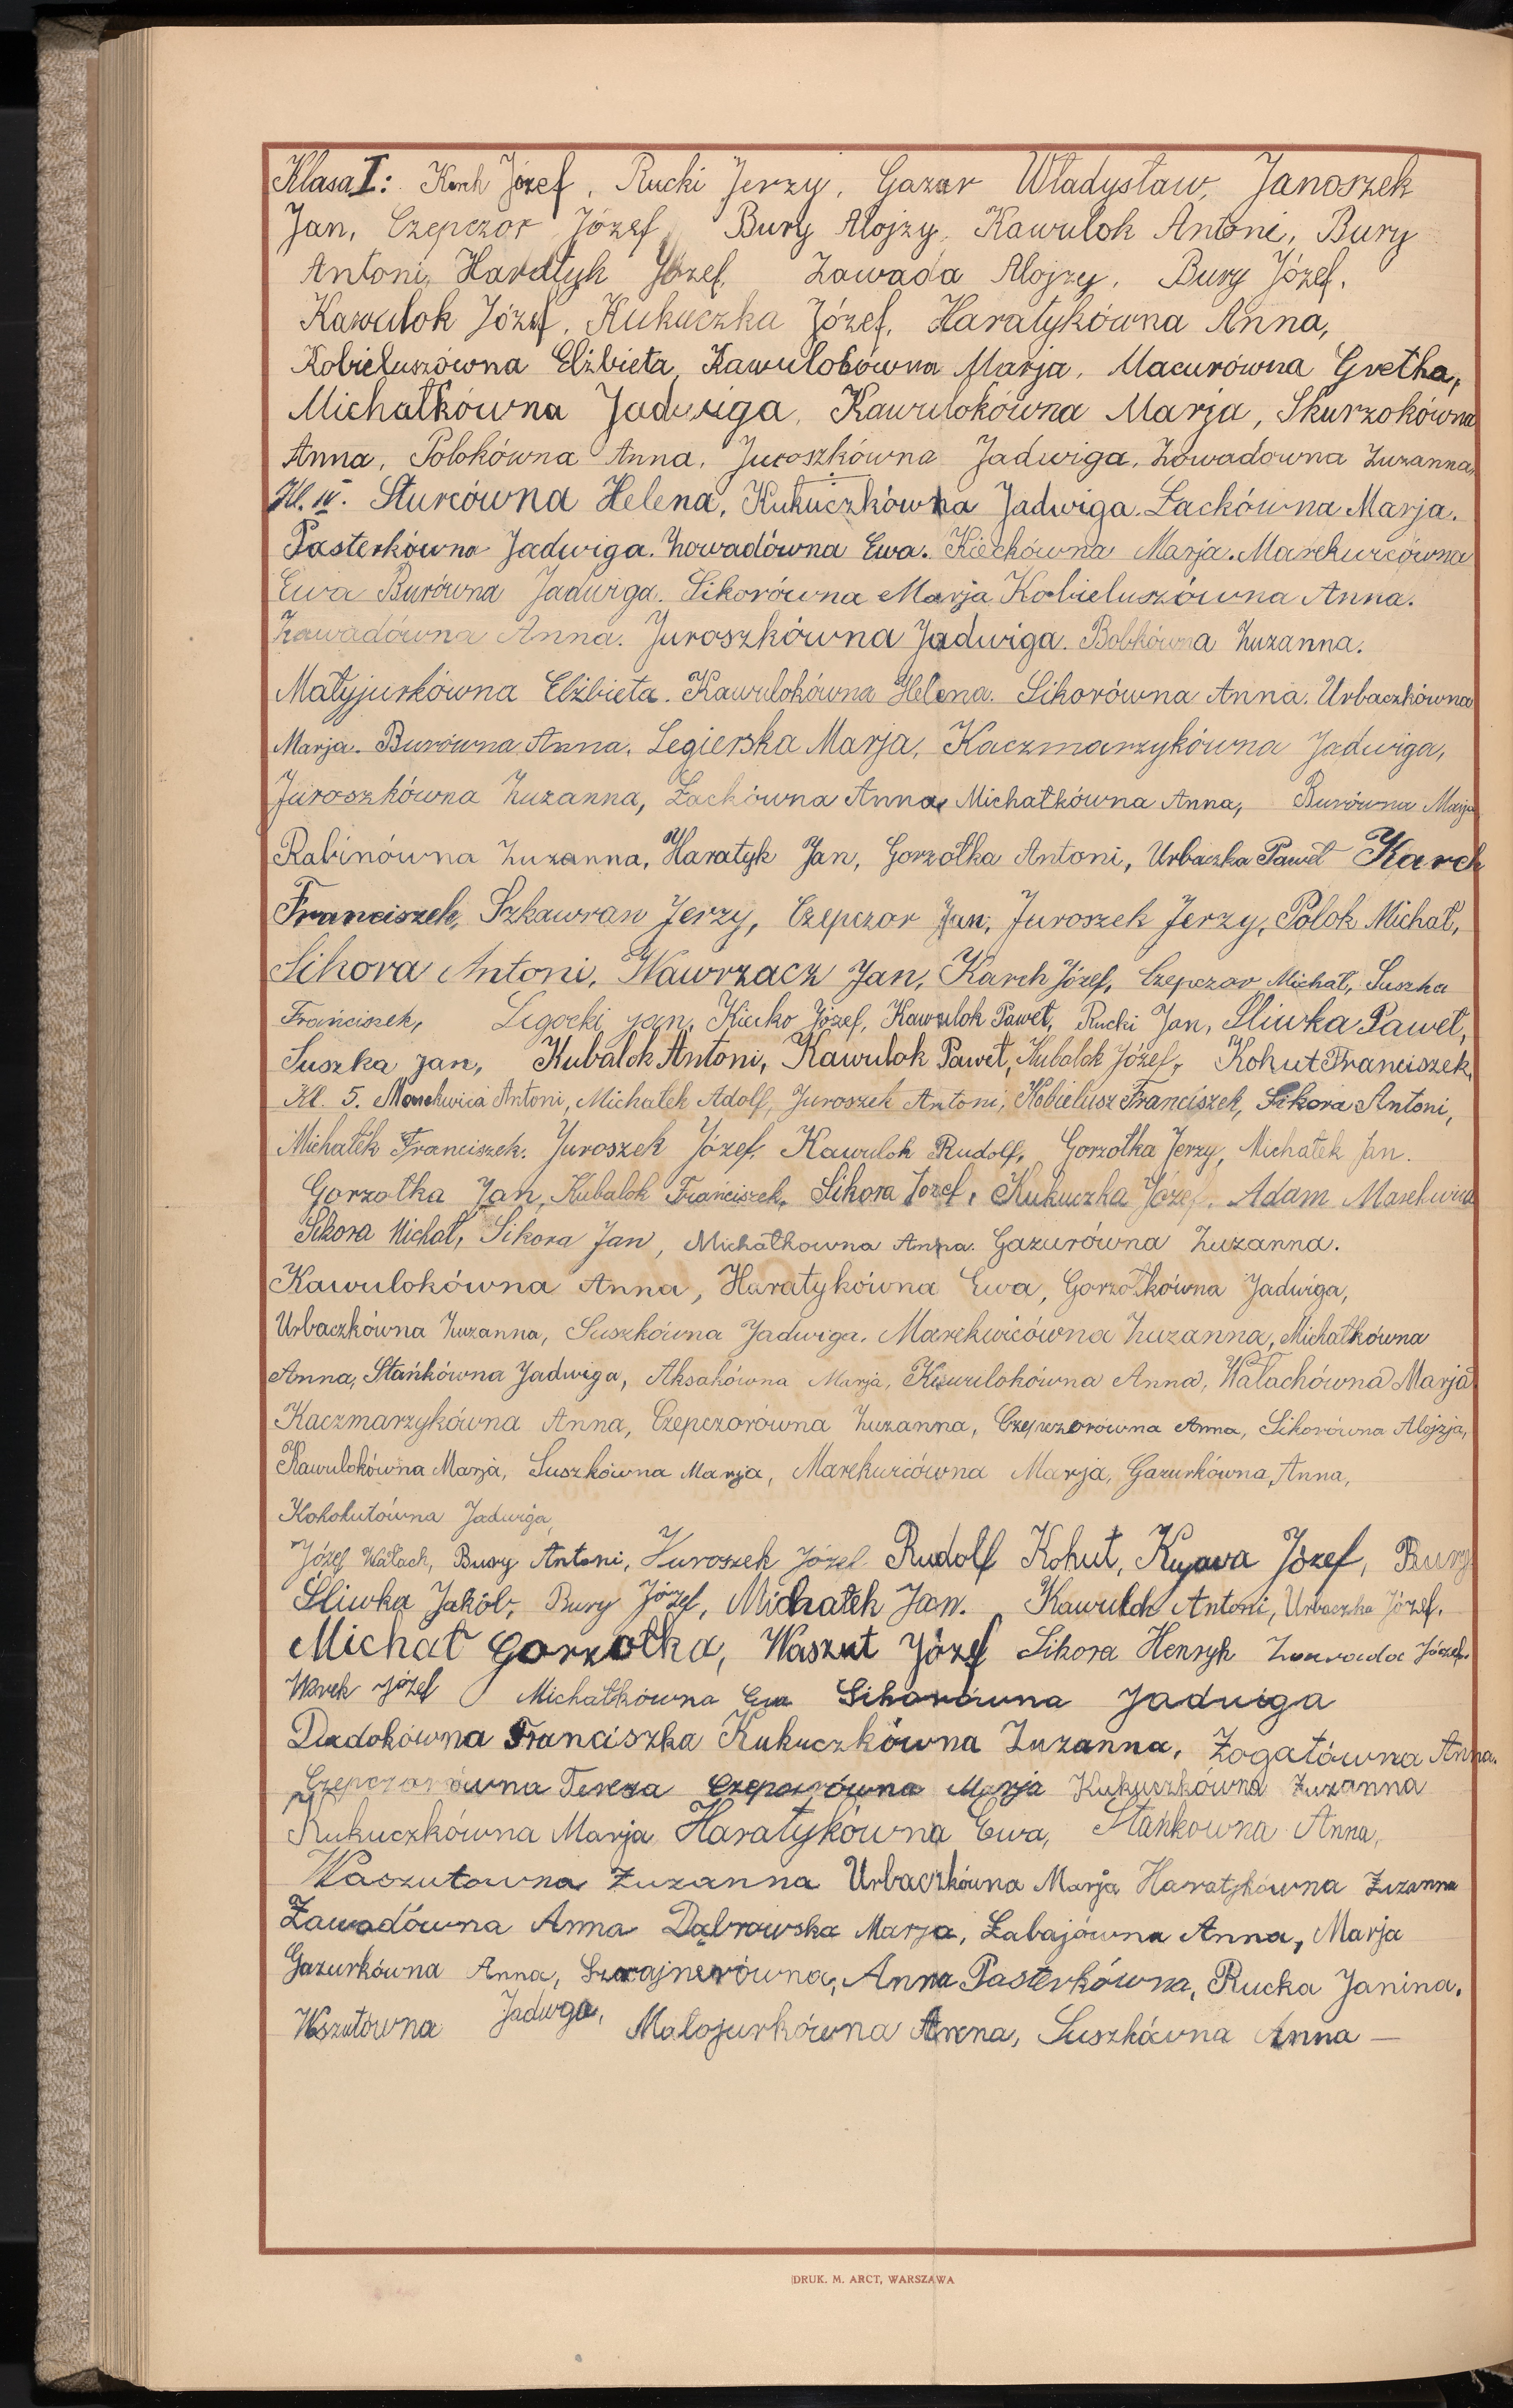 Klasa I: Karch Józef, Rucki Jerzy, Gazur Władysław, Janoszek
Jan, Czepczor Józef, Bury Alojzy, Kawulok Antoni, Bury
Antoni, Haratyk Józef, Zawada Alojzy, Bury Józef,
Kawulok Józef, Kukuczka Józef, Haratykówna Anna,
Kobieluszówna Elżbieta, Kawulokówna Marja, Macurówna Gretha,
Michałkówna Jadwiga, Kawulokówna Marja, Skurzokówna
Anna, Polokówna Anna, Juroszkówna Jadwiga, Zowadowna Zuzanna,
Kl. IV. Sturcówna Helena, Kukuczkówna Jadwiga. Łackówna Marja.
Pasterkówna Jadwiga. Zowadówna Ewa. Kieckówna Marja. Marekwicówna
Ewa Burówna Jadwiga. Sikorówna Marja Kobieluszówna Anna.
Zawadówna Anna. Juroszkówna Jadwiga. Bobkówna Zuzanna.
Matyjurkówna Elżbieta. Kawulokówna Helena. Sikorówna Anna. Urbaczkówna
Marja. Burówna Anna, Legierska Marja, Kaczmarzykówna Jadwiga,
Juroszkówna Zuzanna, Łackówna Anna, Michałkówna Anna, Burówna Marja
Rabinówna Zuzanna, Haratyk Jan, Gorzołka Antoni, Urbaczka Paweł Karch
Franciszek, Szkawran Jerzy, Czepczor Jan, Juroszek Jerzy, Polok Michał,
Sikora Antoni, Wawrzacz Jan, Karch Józef, Czepczor Michał, Suszka
Franciszek, Legocki Jan, Kiecko Józef, Kawulok Paweł, Rucki Jan, Śliwka Paweł,
Suszka Jan, Kubalok Antoni, Kawulok Paweł, Kubalok Józef, Kohut Franciszek,
Kl. 5. Marekwica Antoni, Michałek Adolf, Juroszek Antoni, Kobielusz Franciszek, Sikora Antoni,
Michałek Franciszek. Juroszek Józef, Kawulok Rudolf, Gorzołka Jerzy, Michałek Jan.
Gorzołka Jan, Kubalok Franciszek, Sikora Józef, Kukuczka Józef, Adam Marekwica
Sikora Michał, Sikora Jan, Michałkowna Anna. Gazurówna Zuzanna.
Kawulokówna Anna, Haratykówna Ewa, Gorzołkówna Jadwiga,
Urbaczkówna Zuzanna, Suszkówna Jadwiga, Marekwicówna Zuzanna, Michałkówna
Anna, Stańkówna Jadwiga, Aksakówna Marja, Kawulokówna Anna, Wałachówna Marja
Kaczmarzykówna Anna, Czepczorówna Zuzanna, Czepczorówna Anna, Sikorówna Alojzja,
Kawulokówna Marja, Suszkówna Marja, Marekwicówna Marja, Gazurkówna Anna,
Kohokutówna Jadwiga,
Józef Wałach, Bury Antoni, Juroszek Józef Rudolf Kohut, Kujawa Józef, Bury
Śliwka Jakób, Bury Józef, Michałek Jan. Kawulok Antoni, Urbaczka Józef,
Michał Gorzołka, Waszut Józef Sikora Henryk Zawada Józef.
Józef Michałkówna Ewa Sikorówna Jadwiga
Dudokówna Franciszka Kukuczkówna Zuzanna, Zogatówna Anna.
Czepczorówna Tereza Czepczorówna Marja Kukuczkówna Zuzanna
Kukuczkówna Marja Haratykówna Ewa, Stańkowna Anna,
Waszutowna Zuzanna Urbaczkówna Marja Haratykówna Zuzanna
Zawadówna Anna Dąbrowska Marja, Łabajówna Anna, Marja
Gazurkówna Anna, Szwajnerówna, Anna Pasterkówna, Rucka Janina.
Wszutówna Jadwga, Matojurkówna Anna, Suszkówna Anna —
DRUK. M. ARCT, WARSZAWA